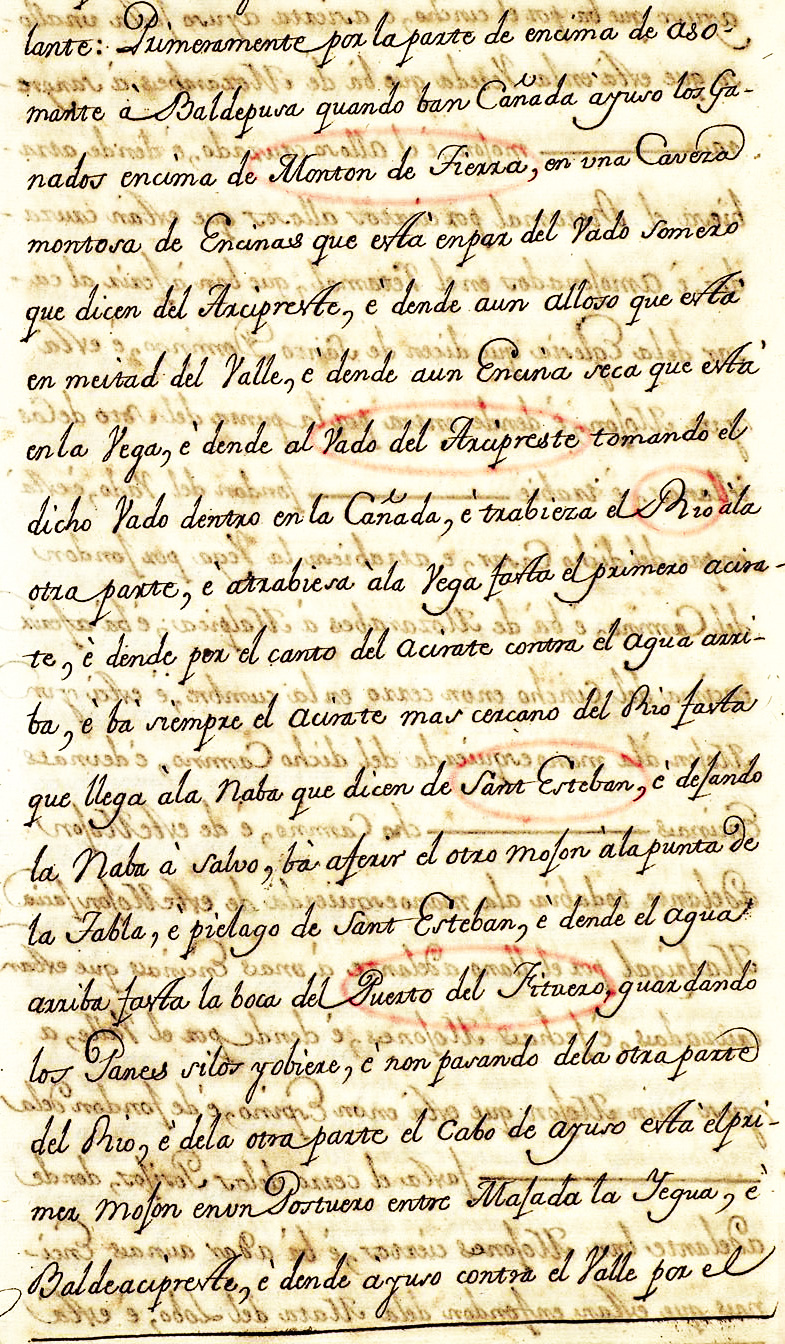 lante: Primeramente por la parte de encima de aso-
mante à Baldepusa quando ban Cañada àyuso los Ga-
nados encima de Monton de Tierra, en vna Caveza
montosa de Encinas que està enpar del Vado somero
que dicen del Arcipreste, e dende aun alloso que està
en meitad del Valle, e dende aun Encina seca que està
en la Vega, è dende al Vado del Arcipreste tomando el
dicho Vado dentro en la Cañada, è trabieza el Rio àla
otra parte, e atrabiesa àla Vega fasta el primero acira-
te, è dende por el canto del acirate contra el agua arri-
ba, è bà siempre el acirate mas cercano del Rio fasta
que llega àla Naba que dicen de Sant Esteban, è dejando
la Naba à salvo, bà aferir el otro mojon àla punta de
la Tabla, è pielago de Sant Esteban, è dende el agua
arriba fasta la boca del Puerto del Fituero, guardando
los Panes silos yobiere, è non pasando dela otra parte
del Rio, è dela otra parte el Cabo de ayuso està el pri-
mer mojon envn Postuero entre Majada la Yegua, è
Baldeacipreste, è dende ayuso contra el Valle por el